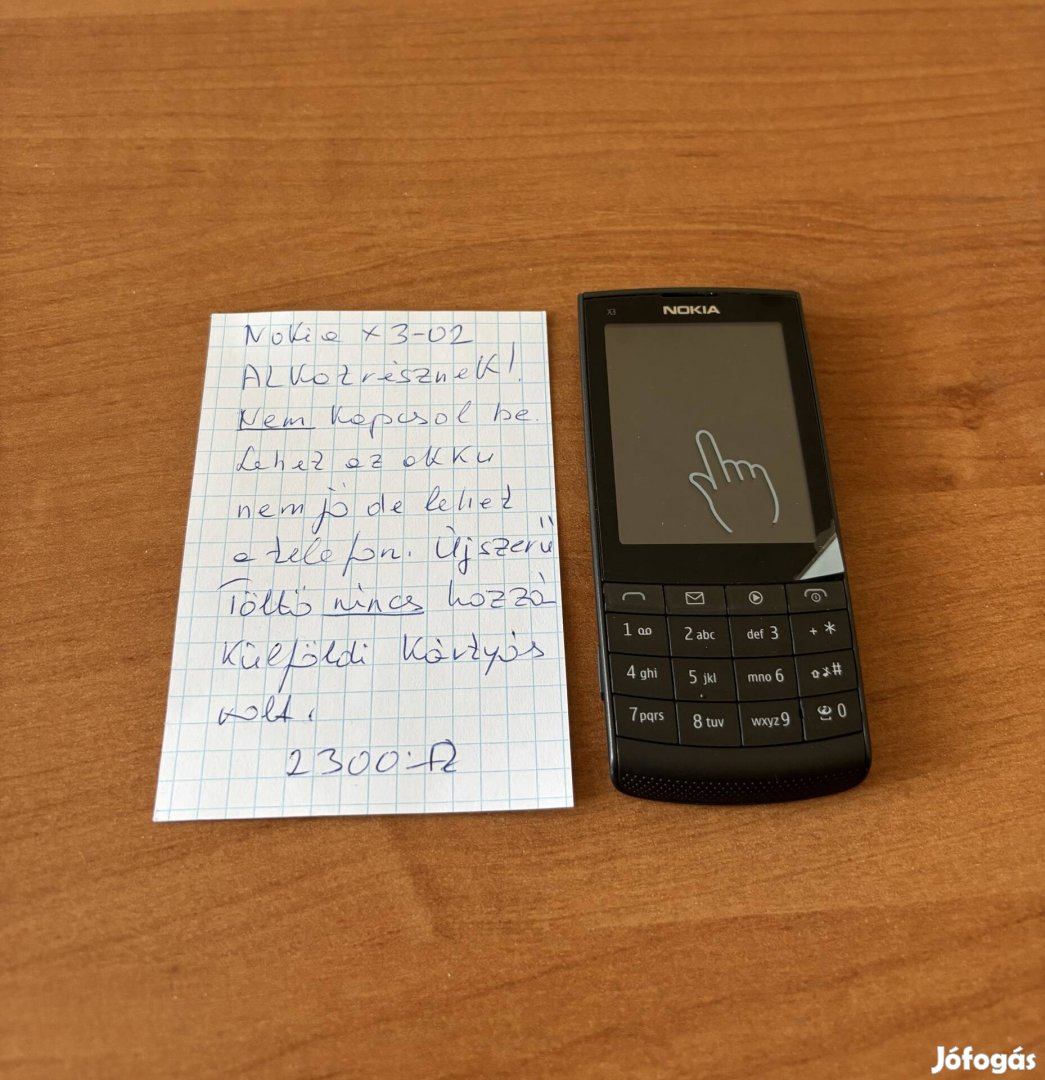 Nokia X3-02
ALKatrésznek!
Nem kapcsol be.
Lehet az akku
nem jó de lehet
a telefon. Újszerű
Töltő nincs hozzá
Külföldi Kártyás
volt.
2300.-Ft
X3
NOKIA
1
2 abc
def 3
+ *
4 ghi
5 jkl
mno 6
#
7 pqrs
8 tuv
wxyz 9
0
Jófogás